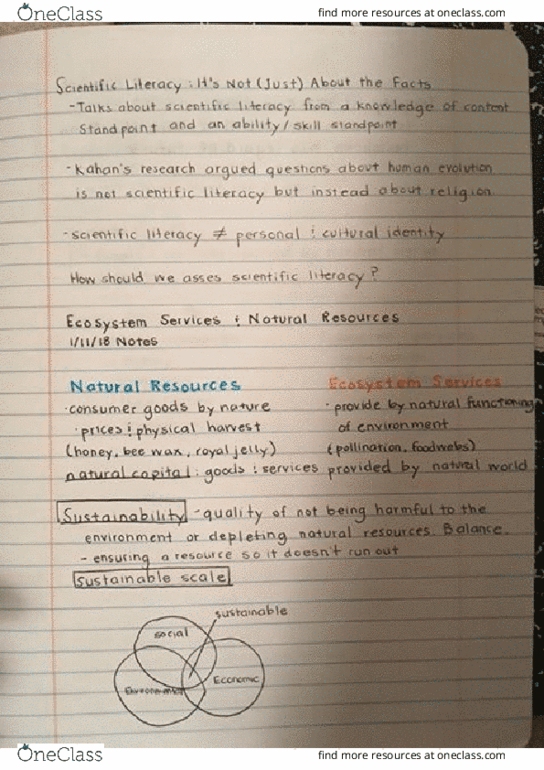 OneClass
find more resources at oneclass.com
Scientific Literacy : It's Not (Just) About the Facts
-Talks about scientific literacy from a knowledge of content
standpoint and an ability/skill standpoint
-Kahan's research argued questions about human evolution
is not scientific literacy but instead about religion
-scientific literacy ≠ personal & cultural identity
How should we asses scientific literacy?
Ecosystem Services & Natural Resources
1/11/18 Notes
Natural Resources
·consumer goods by nature
·prices & physical harvest
(honey, bee wax, royal jelly)
Ecosystem Services
·provide by natural functioning
of environment
(pollination, foodwebs)
natural capital : goods & services provided by natural world
Sustainability -quality of not being harmful to the
environment or depleting natural resources. Balance.
- ensuring a resource so it doesn't run out
sustainable scale
sustainable
social
Environmental
Economic
OneClass
find more resources at oneclass.com